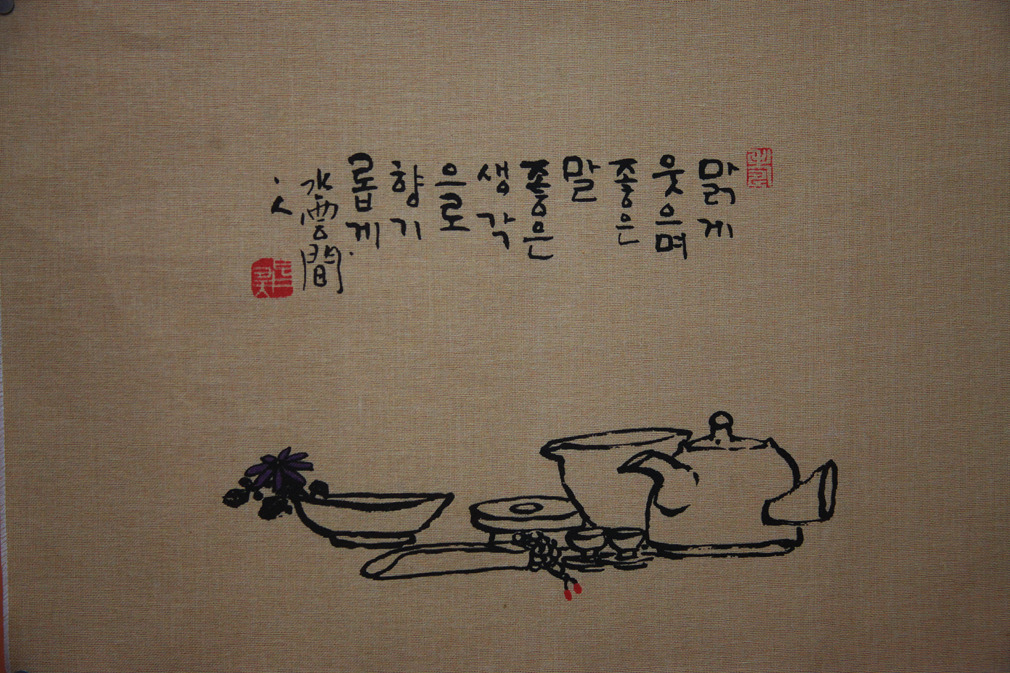 맑게
웃으며
좋은
말
좋은
생각
으로
향기
롭게
水雲間